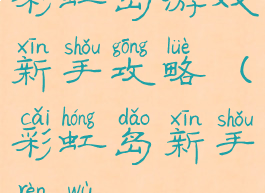 彩虹岛游戏
xīn shǒu gōng lüè
新手攻略（
cǎi hóng dǎo xīn shǒu
彩虹岛新手
rèn wù